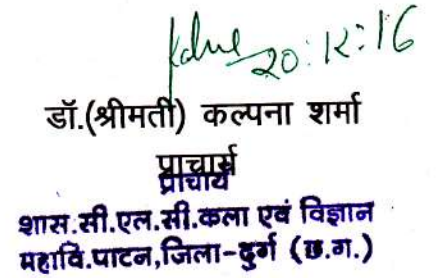 20:12:16
डॉ.(श्रीमती) कल्पना शर्मा
प्राचार्य
प्राचार्य
शास.सी.एल.सी.कला एवं विज्ञान
महावि.पाटन,जिला-दुर्ग (छ.ग.)